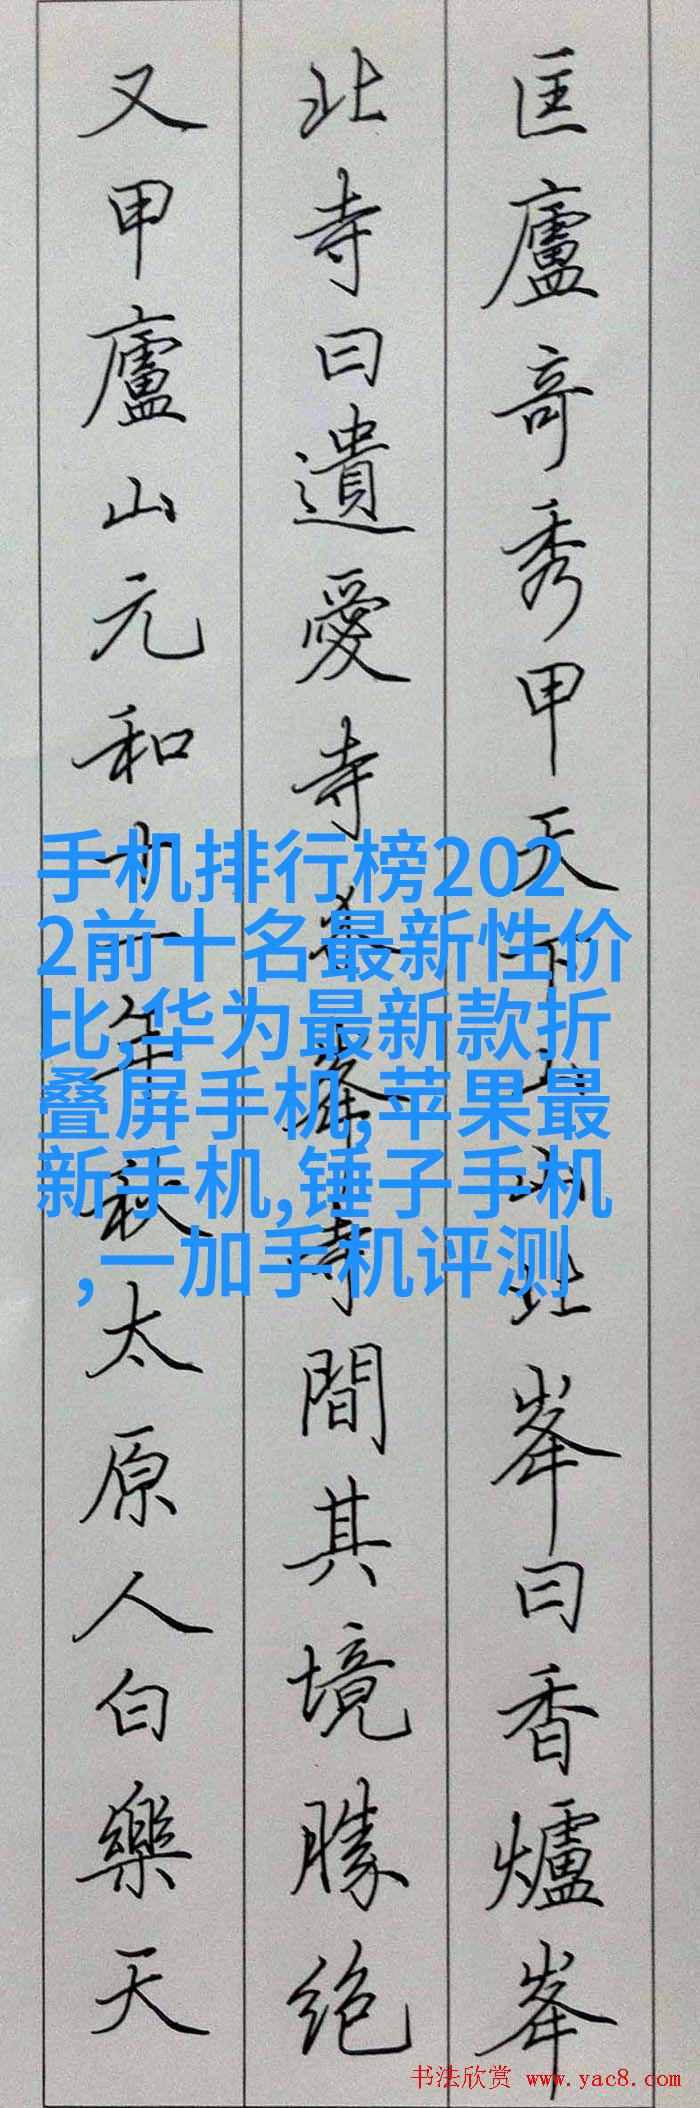 匡廬竒秀甲天下山山北峯曰香爐峯
北寺曰遺愛寺介峯寺間其境勝絶
又甲廬山元和十一年秋太原人白樂天
手机排行榜202
2前十名最新性价
比,华为最新款折
叠屏手机,苹果最
新手机,锤子手机
,一加手机评测
书法欣赏 www.yac8.com